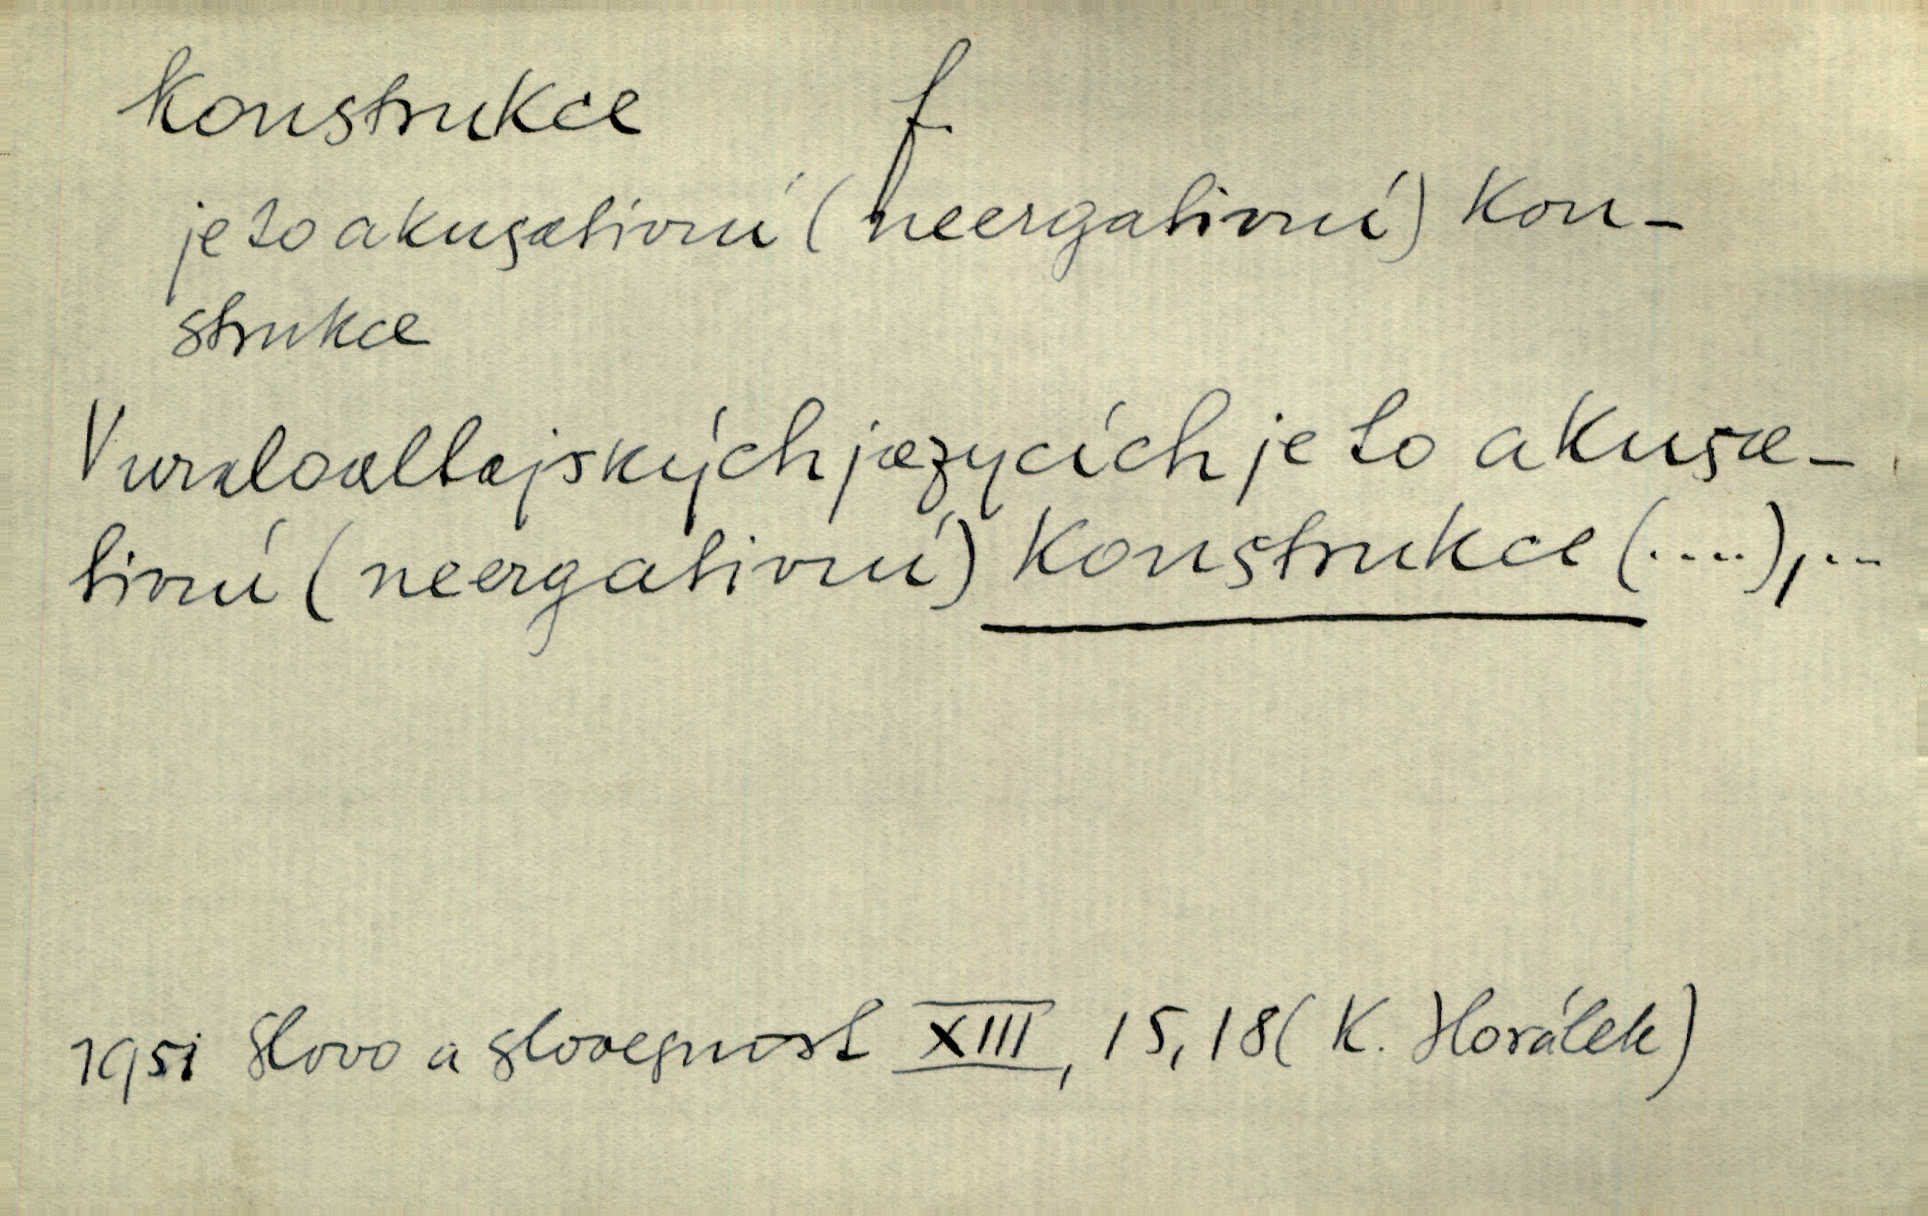 konstrukce f.
je to akusativní (neergativní) kon-
strukce
V uraloaltajských jazycích je to akusa-
tivní (neergativní) konstrukce (....),...
1951 Slovo a slovesnost XIII, 15,18 (K. Horálek)